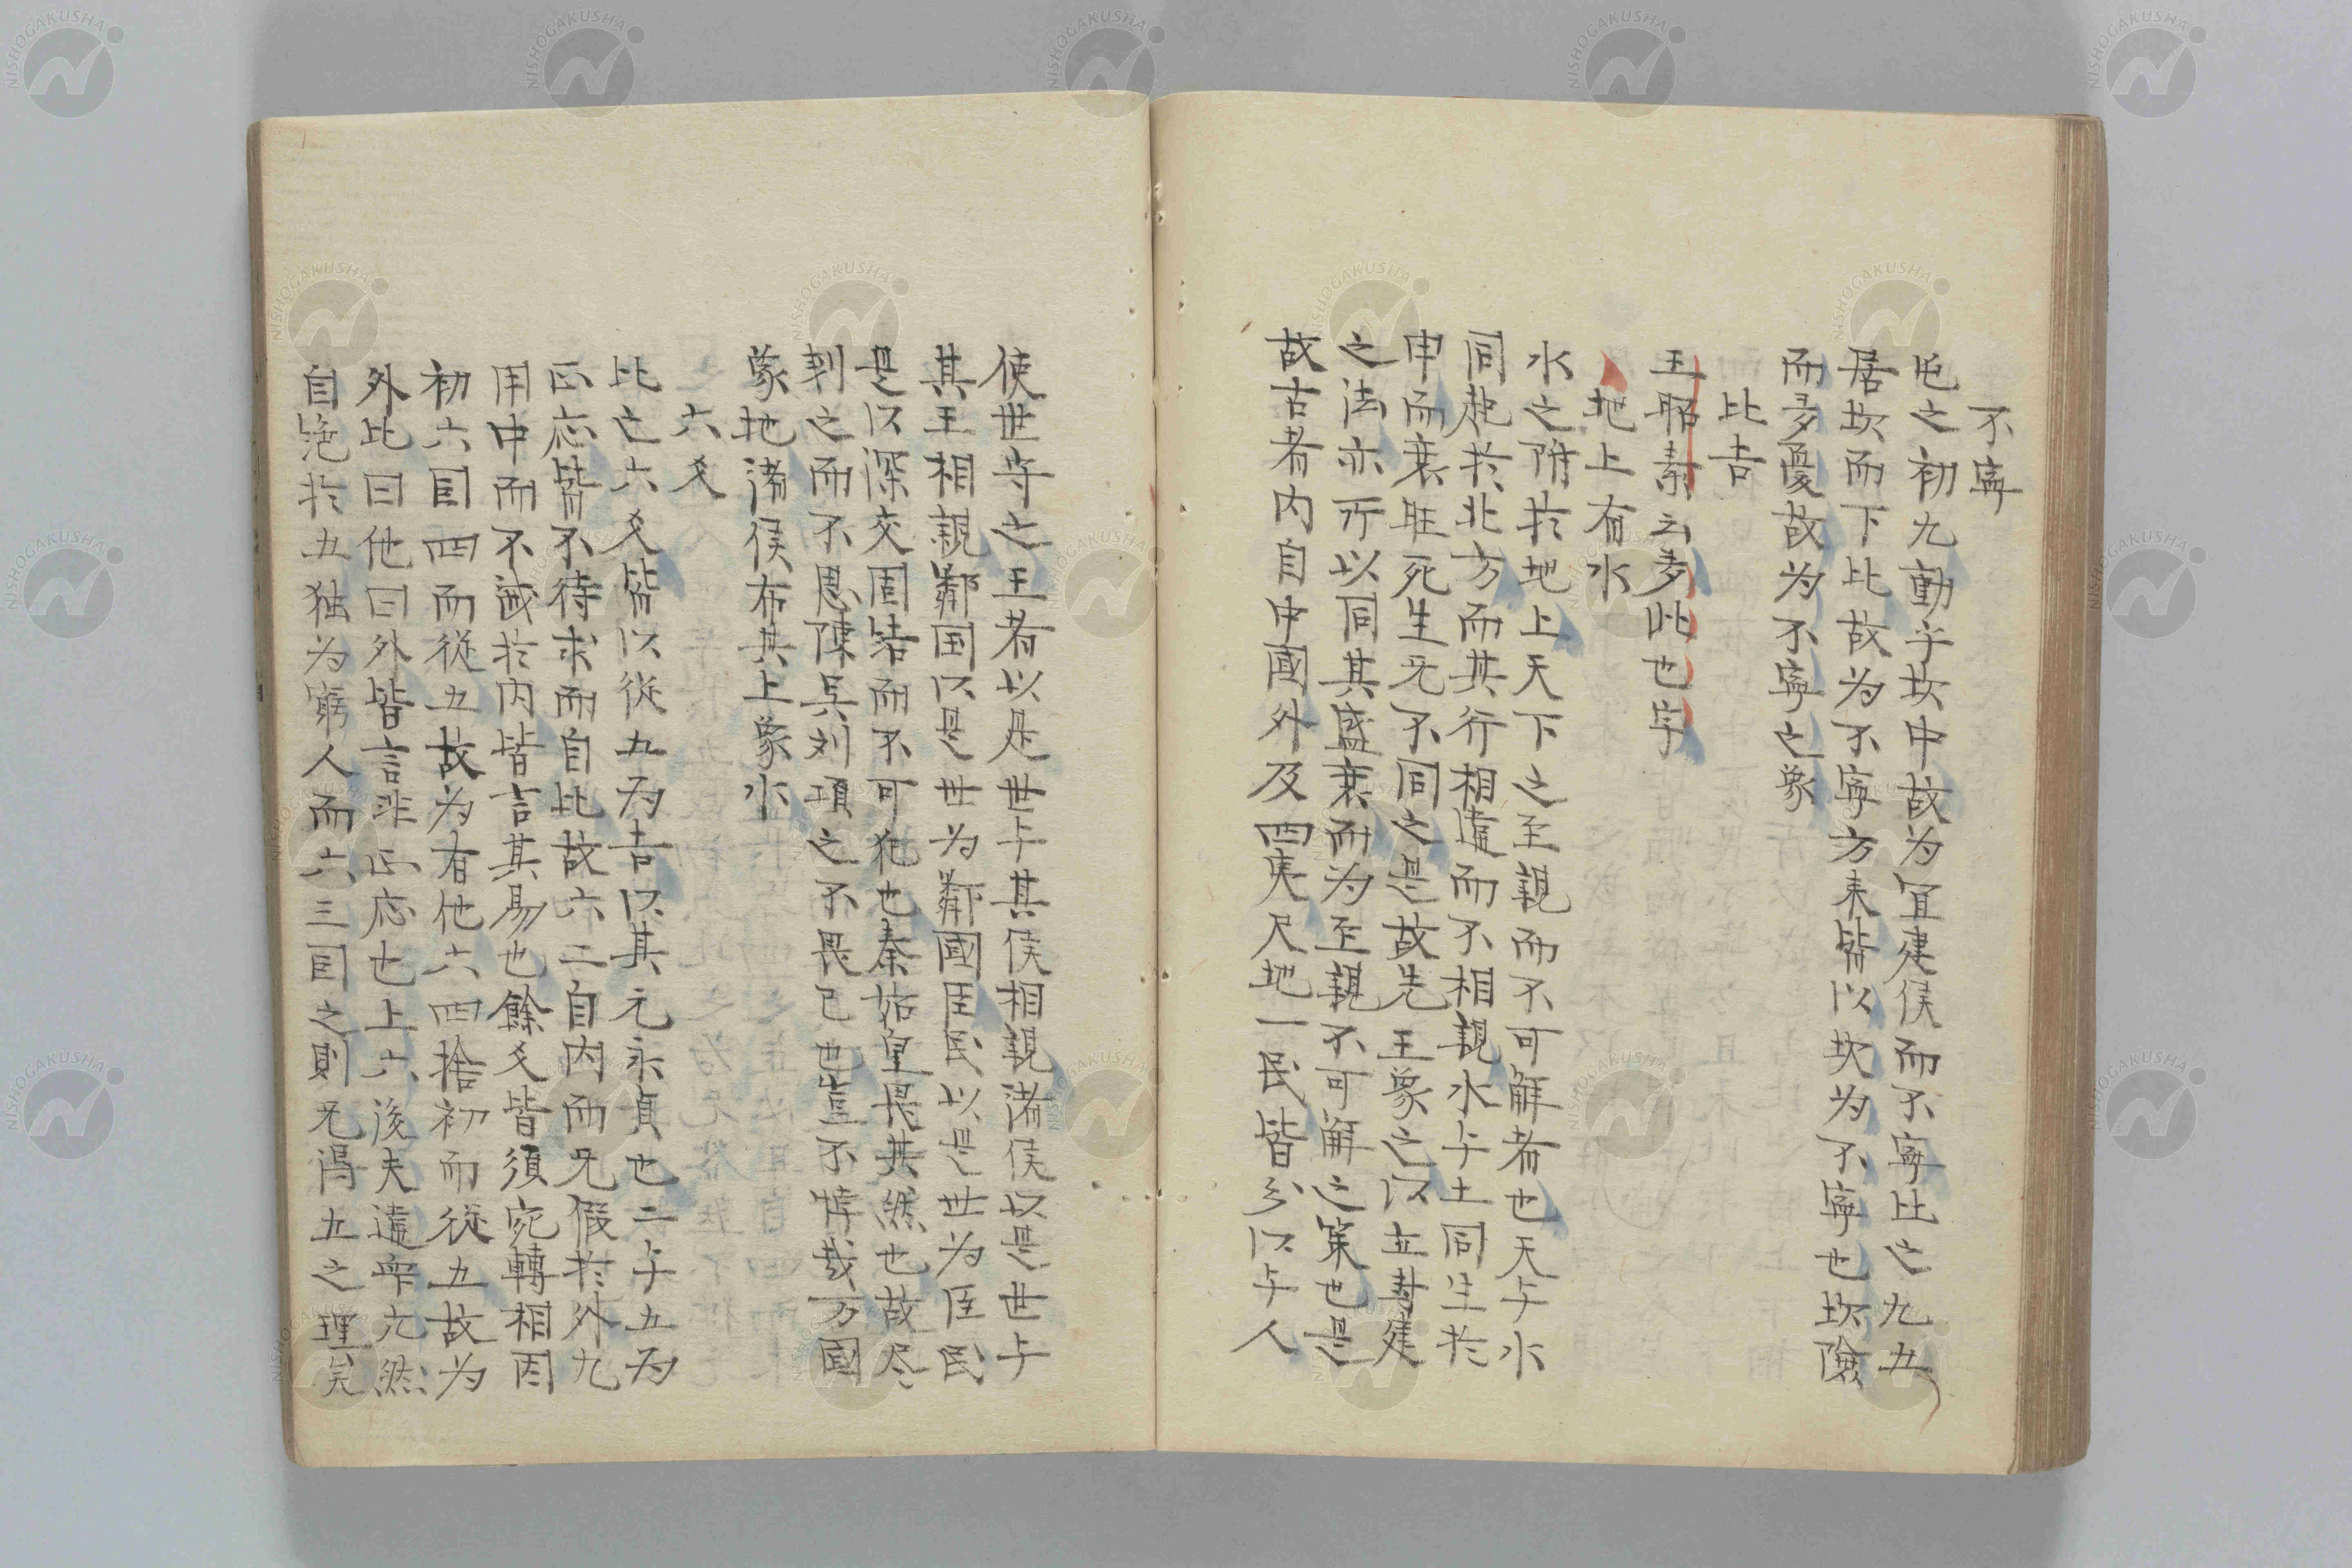 不寧
屯之初九動乎坎中故为宜建侯而不寧比之九五
居坎而下比故为不寧方来皆以坎为不寧也坎險
而多憂故为不寧之象
比吉
王昭素云多此也字
地上有水
水之附於地上天下之至親而不可解者也天与水
同起於北方而其行相違而不相親水与土同生於
申而衰旺死生无不同之是故先王象之以立封建
之法亦所以同其盛衰而为至親不可解之策也是
故古者内自中國外及四夷尺地一民皆分以与人
使世守之王者以是世与其侯相親諸侯以是世与
其王相親鄰国以是世为鄰國臣民以是世为臣民
是以深交固结而不可犯也秦始皇畏其然也故尽
剗之而不思陳吳刘項之不畏已也豈不悖哉万國
象地諸侯布其上象水
六爻
比亡六爻皆以從九为吉以其元永貞也二与五为
正応皆不待求而自比故六二自内而无假於外九
用中而不誡於内皆言其易也餘爻皆須宛轉相因
初六因四而從五故为有他六四捨初而從五故为
外比曰他曰外皆言非正応也上六後夫違衆亢然
自绝於五独为窮人而六三因之則无得五之理矣